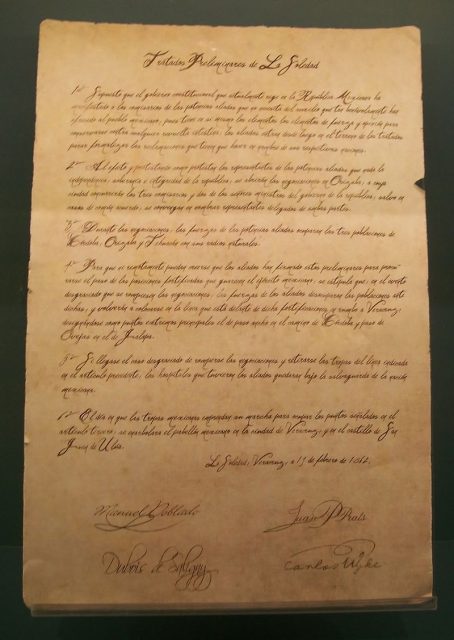 Tratados Preliminares de La Soledad
1º Supuesto que el gobierno constitucional que actualmente rige en la República Mexicana ha
manifestado a los comisarios de las potencias aliadas que no necesita del auxilio que tan bondadosamente han
ofrecido al pueblo mexicano, pues tiene en sí mismo los elementos de fuerza y opinión para
conservarse contra cualquier revuelta intestina, los aliados entran desde luego en el terreno de los tratados
para formalizar las reclamaciones que tienen que hacer en nombre de sus respectivas naciones.
2º Al efecto y protestando como protestan los representantes de las potencias aliadas que nada
independencia, soberanía e integridad de la república, se abrirán las negociaciones en Orizaba, a cuya
ciudad concurrirán los tres comisarios y dos de los señores ministros del gobierno de la república, salvo en
caso de común acuerdo, se convenga en nombrar representantes delegados de ambas partes.
3º Durante las negociaciones, las fuerzas de las potencias aliadas ocuparán las tres poblaciones de
Córdoba, Orizaba y Tehuacán con sus radios naturales.
4º Para que ni remotamente pueda creerse que los aliados han firmado estos preliminares para
se el paso de las posiciones fortificadas que guarnece el ejército mexicano, se estipula que, en el evento
desgraciado que se rompiesen las negociaciones, las fuerzas de los aliados desocuparán las poblaciones
dichas, y volverán a colocarse en la línea que está delante de dichas fortificaciones, en rumbo a Veracruz,
designándose como puntos extremos principales el de paso ancho en el camino de Córdoba y paso de
Ovejas en el de Jalapa.
5º Si llegase el caso desgraciado de romperse las negociaciones y retirarse las tropas del línea indicada
en el artículo precedente, los hospitales que tuvieren los aliados quedarán bajo la salvaguardia de la nación
mexicana.
El día en que las tropas emprendan su marcha para ocupar los puntos señalados en el
artículo tercero, se enarbolará el pabellón mexicano en la ciudad de Veracruz, y en el castillo de San
Juan de Ulúa.
La Soledad, Veracruz, a 19 de febrero de
Manuel Doblado
Juan P Prats
Dubois de Saligny
Carlos Wyke